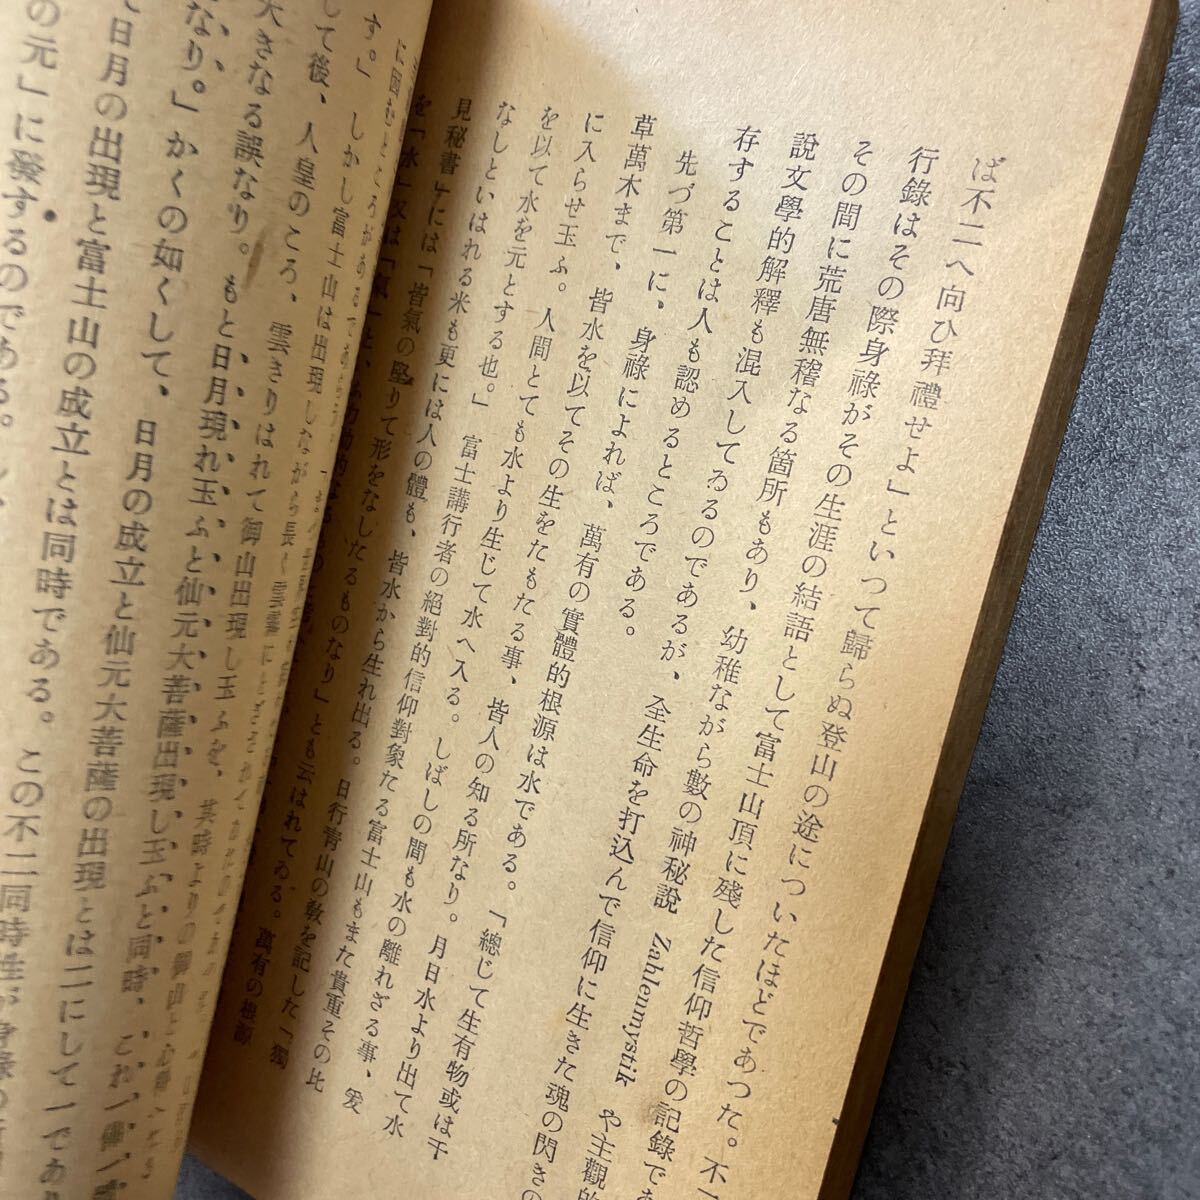 ば不二へ向ひ拜禮せよ」といつて歸らぬ登山の途についたほどであつた。不
行錄はその際身祿がその生涯の結語として富士山頂に殘した信仰哲學の記錄であ
その間に荒唐無稽なる箇所もあり、幼稚ながら數の神秘說 Zahlenmystik や主觀的
說文學的解釋も混入してゐるのであるが、全生命を打込んで信仰に生きた魂の閃きの
存することは人も認めるところである。
先づ第一に、身祿によれば、萬有の實體的根源は水である。「總じて生有物或は千
草萬木まで、皆水を以てその生をたもたる事、皆人の知る所なり。月日水より出て水
に入らせ玉ふ。人間とても水より生じて水へ入る。しばしの間も水の離れざる事、爰
を以て水を元とする也。」富士講行者の絕對的信仰對象たる富士山もまた貴重その比
なしといはれる米も更には人の體も、皆水から生れ出る。日行青山の敎を記した「獨
見秘書」には「皆氣の堅りて形をなしたるものなり」とも云はれてゐる。萬有の根源
を「水」又は「氣」と、
に困むところがある
す。」しかし富士山は出現しながら長く雲霧にとざされ
して後、人皇のころ、雲きりはれて御山出現し玉ふを、其時よりの御山と心得
大きなる誤なり。もと日月現れ玉ふと仙元大菩薩出現し玉ふと同時、これ一佛一
なり。」かくの如くして、日月の成立と仙元大菩薩の出現とは二にして一であ
て日月の出現と富士山の成立とは同時である。この不二同時性が身祿の
の元」に發するのである。